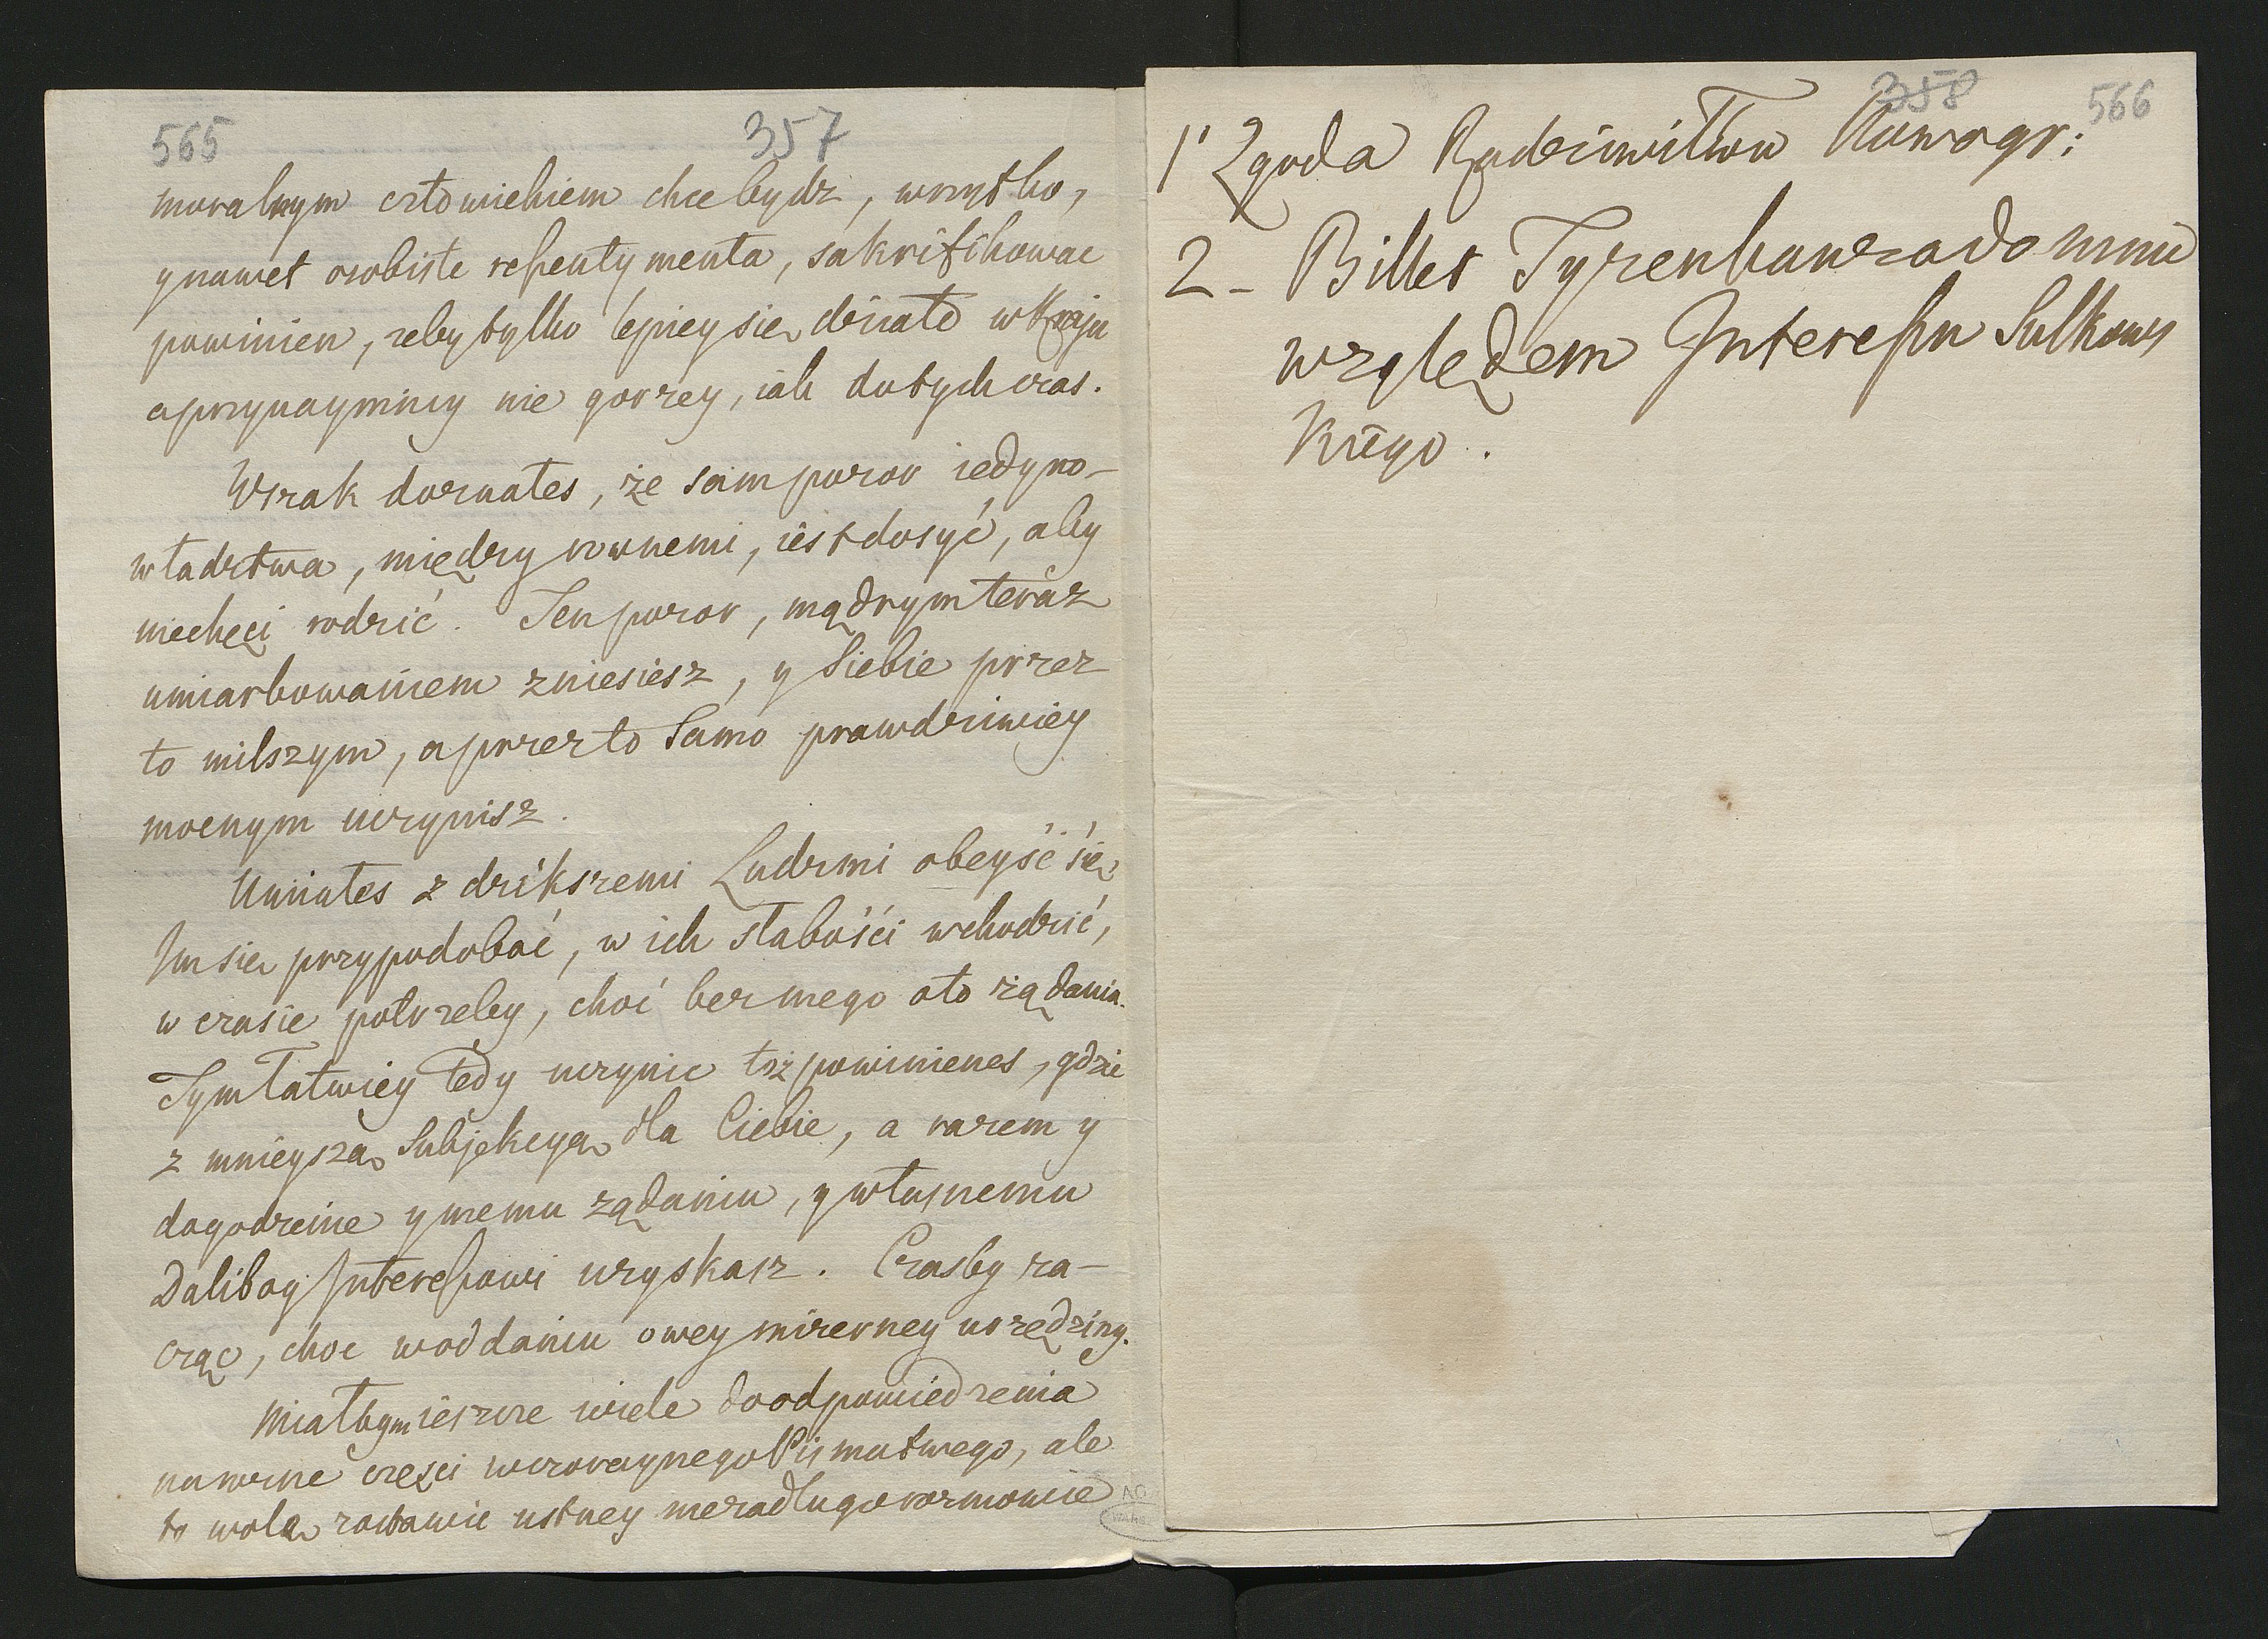 565
357
moralnym człowiekiem chce bydz, wszytko,
y nawet osobiste resentymenta, sakrifikowac
powinien, zeby tylko lepiey się działo w Kraju
a przynaymniey nie gorzey, iak dotychczas.
Wszak doznałes, że sam pozor iedyno-
władztwa, między rownemi, iest dosyć, aby
niechęci rodzić. Ten pozor, mądrym teraz
umiarkowaniem zniesiesz, y siebie przez
to milszym, a przez to samo prawdziwiey
mocnym uczynisz.
Umiałes z dzikszemi Ludzmi obeyść się,
Im się przypodobać, w ich słabości wchodzić,
w czasie potrzeby, choć bez mego o to żądania.
Tym łatwiey tedy uczynic toż powinienes, gdzie
z mnieyszą Subjekcyą dla Ciebie, a razem y
dogodzenie y memu ządaniu, y własnemu
Dalibog Interessowi uzyskasz. Czasby za-
cząc, choc w oddaniu owey mizerney urzędziny.
Miałbym ieszcze wiele do odpowiedzenia
na rozne części wczorayszego Pisma twego, ale
to wolę zostawić ustney niezadługo rozmowie
358
566
1° Zgoda Radziwiłłow Nowogr:
2 - Billet Tyzenhauza do mnie
względem Interessu Sulkows
kiego.